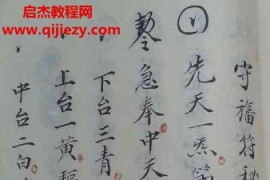 启杰教程网
www.qijiezy.com
守旛符秘
先天一炁
急奉中天
下台三青
上台一黃驅
中台二白